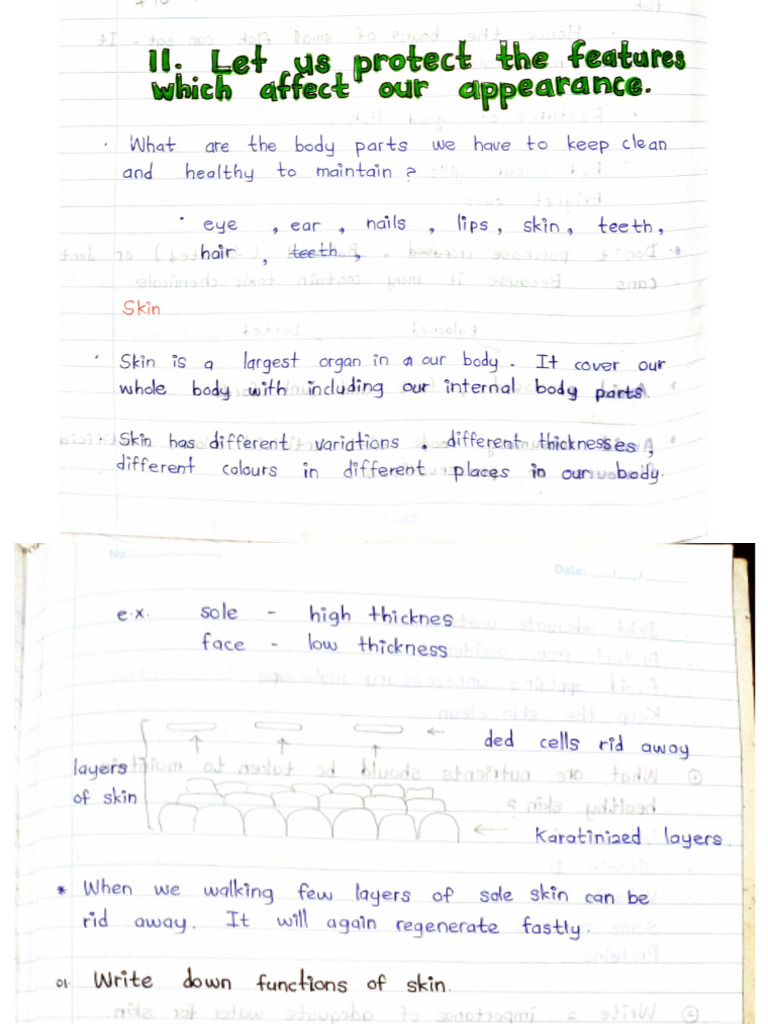 11. Let us protect the features
which affect our appearance.
· What are the body parts we have to keep clean
and healthy to maintain ?
· eye , ear , nails , lips , skin , teeth ,
hair , teeth ,
Skin
· Skin is a largest organ in a our body . It cover our
whole body with including our internal body parts.
· Skin has different variations . different thicknesses ,
different colours in different places in our body.
No :
Date: __/__/__
e.x. sole - high thicknes
face - low thickness
ded cells rid away
layers
of skin
Karatinized layers.
* When we walking few layers of sole skin can be
rid away. It will again regenerate fastly.
01. Write down functions of skin.